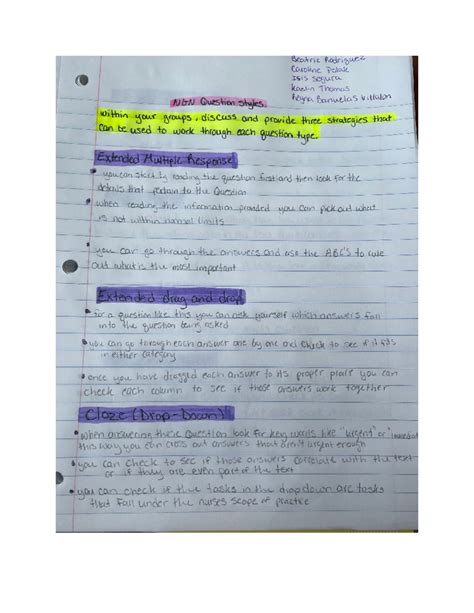 Beatriz Rodriguez
Caroline Polak
Isis Segura
Kaelin Thomas
Reyna Banuelos Villalon
NGN Question Styles
within your groups, discuss and provide three strategies that
can be used to work through each question type.
Extended Multiple Response
you can start by reading the question first and then look for the
details that pertain to the Question
when reading the information provided you can pick out what
is not within normal limits
you can go through the answers and use the ABC'S to rule
out what is the most important
Extended drag and drop
for a question like this you can ask yourself which answers fall
into the question being asked
you can go through each answer one by one and check to see if it fits
in either category
once you have dragged each answer to its proper place you can
check each column to see if those answers work together
Cloze (Drop-Down)
when answering these Question look for key words like "urgent" or "immediate"
this way you can cross out answers that aren't urgent enough
you can check to see if those answers correlate with the text
or if they are even part of the text
you can check if the tasks in the dropdown are tasks
that fall under the nurses scope of practice